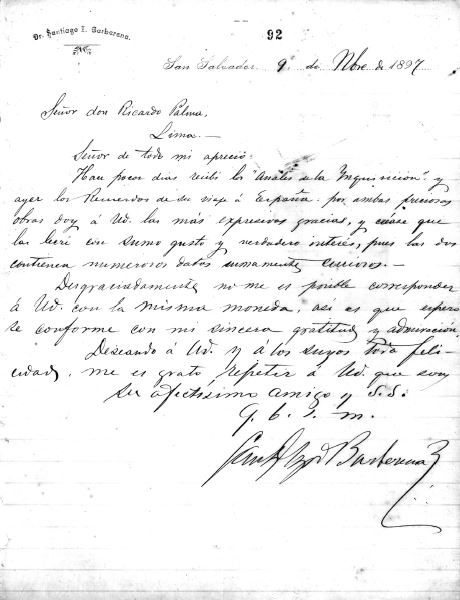 Dr. Santiago I. Barberena.
92
San Salvador, 9 de Nbre. de 1897
Señor don Ricardo Palma,
Lima.—
Señor de todo mi aprecio:
Han pocos dias recibí los "Anales de la Inquisicion" y
ayer los Recuerdos de su viaje á España: por ambas preciosas
obras doy á Ud. las más expresivas gracias, y créase que
las leeré con sumo gusto y verdadero interés, pues las dos
contienen numerosos datos sumamente curiosos.—
Desgraciadamente no me es posible corresponder
á Ud. con la misma moneda, asi es que espero
se conforme con mi sincera gratitud y admiración.
Deseando á Ud. y á los suyos toda feli-
cidad, me es grato repetir á Ud. que soy
su afectísimo amigo y S.S.
q. b. s. m.
Barberena